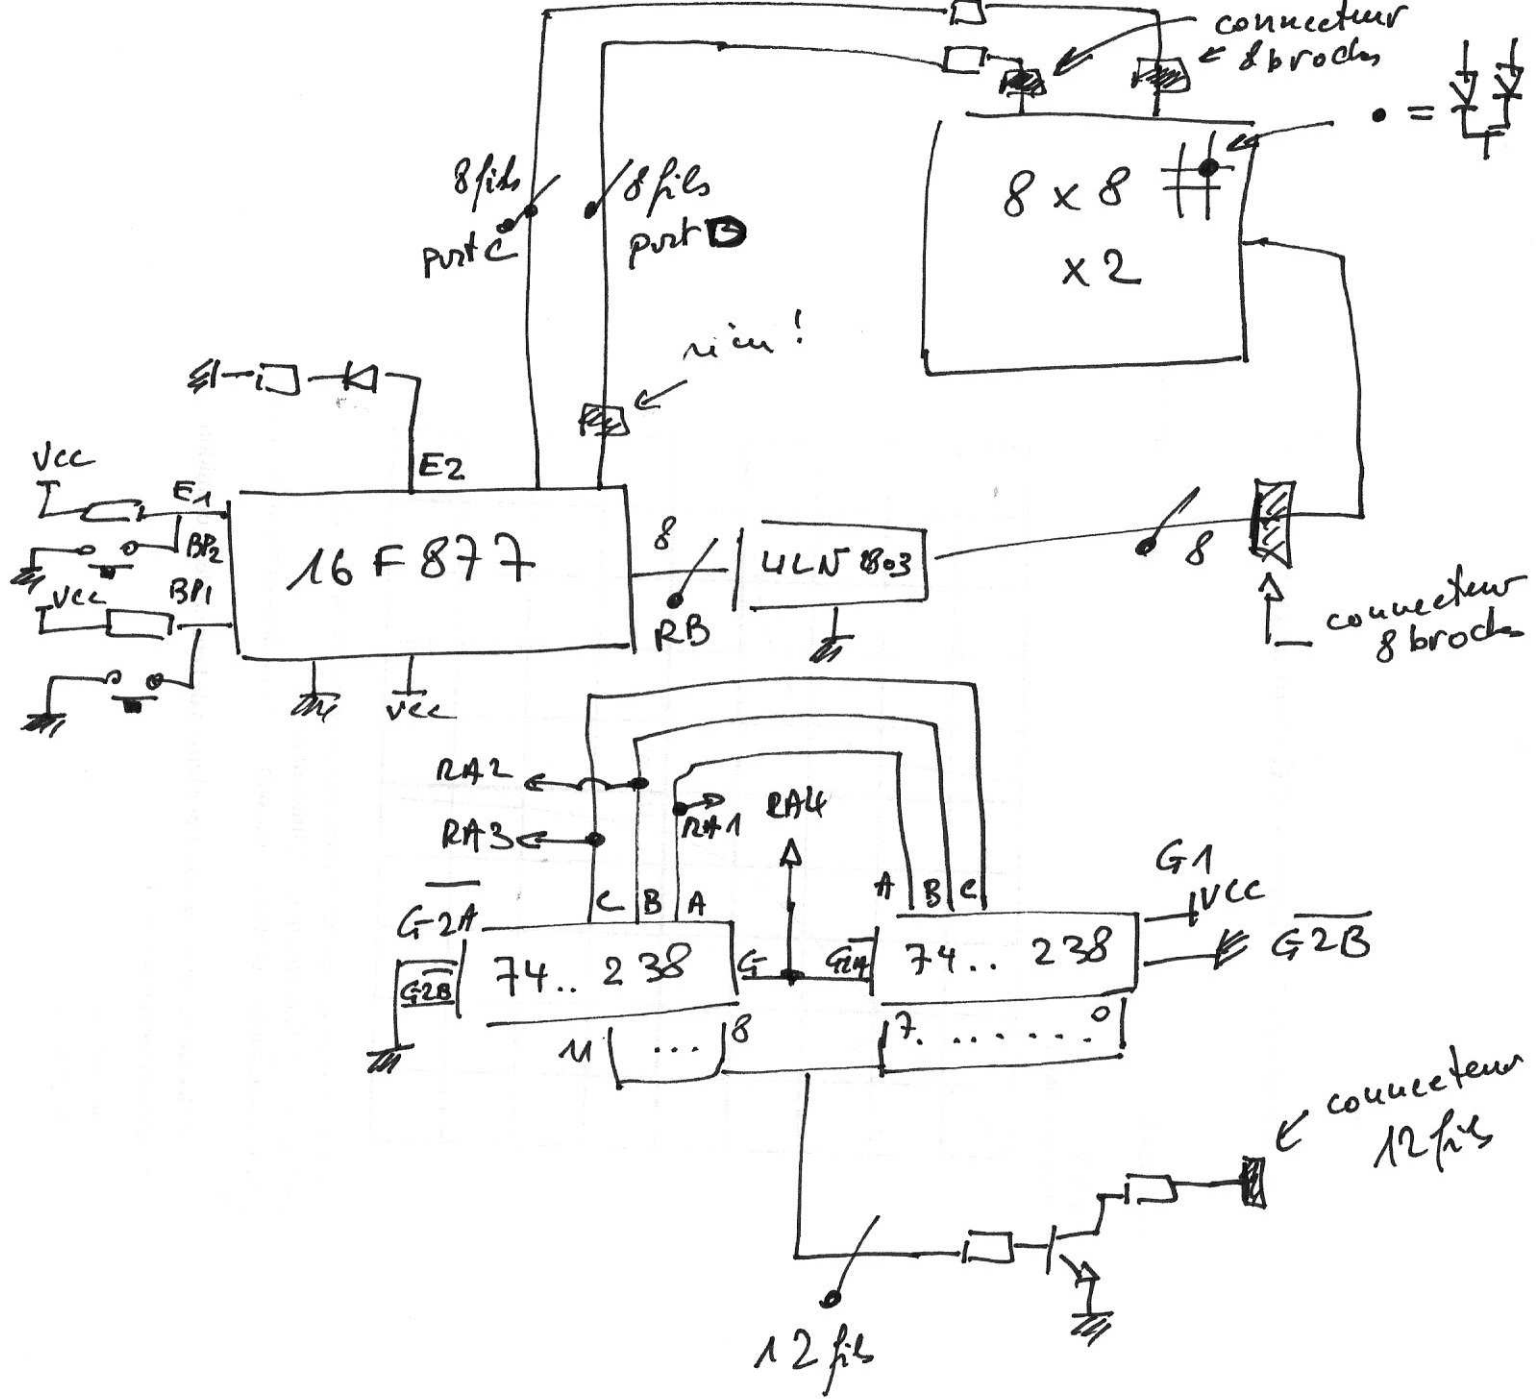 connecteur
8 broches
• =
8 fils
port C
8 fils
port D
8 x 8
x 2
rien !
E2
Vcc
E1
BP2
16 F 877
Vcc
BP1
8
RB
ULN 2803
8
connecteur
8 broches
Vcc
RA2
RA3
RA1
RA4
C B A
A B C
G1
VCC
G2A
G2B
74.. 238
G
74.. 238
G2B
11 ... 8
7. ...... 0
connecteur
12 fils
12 fils